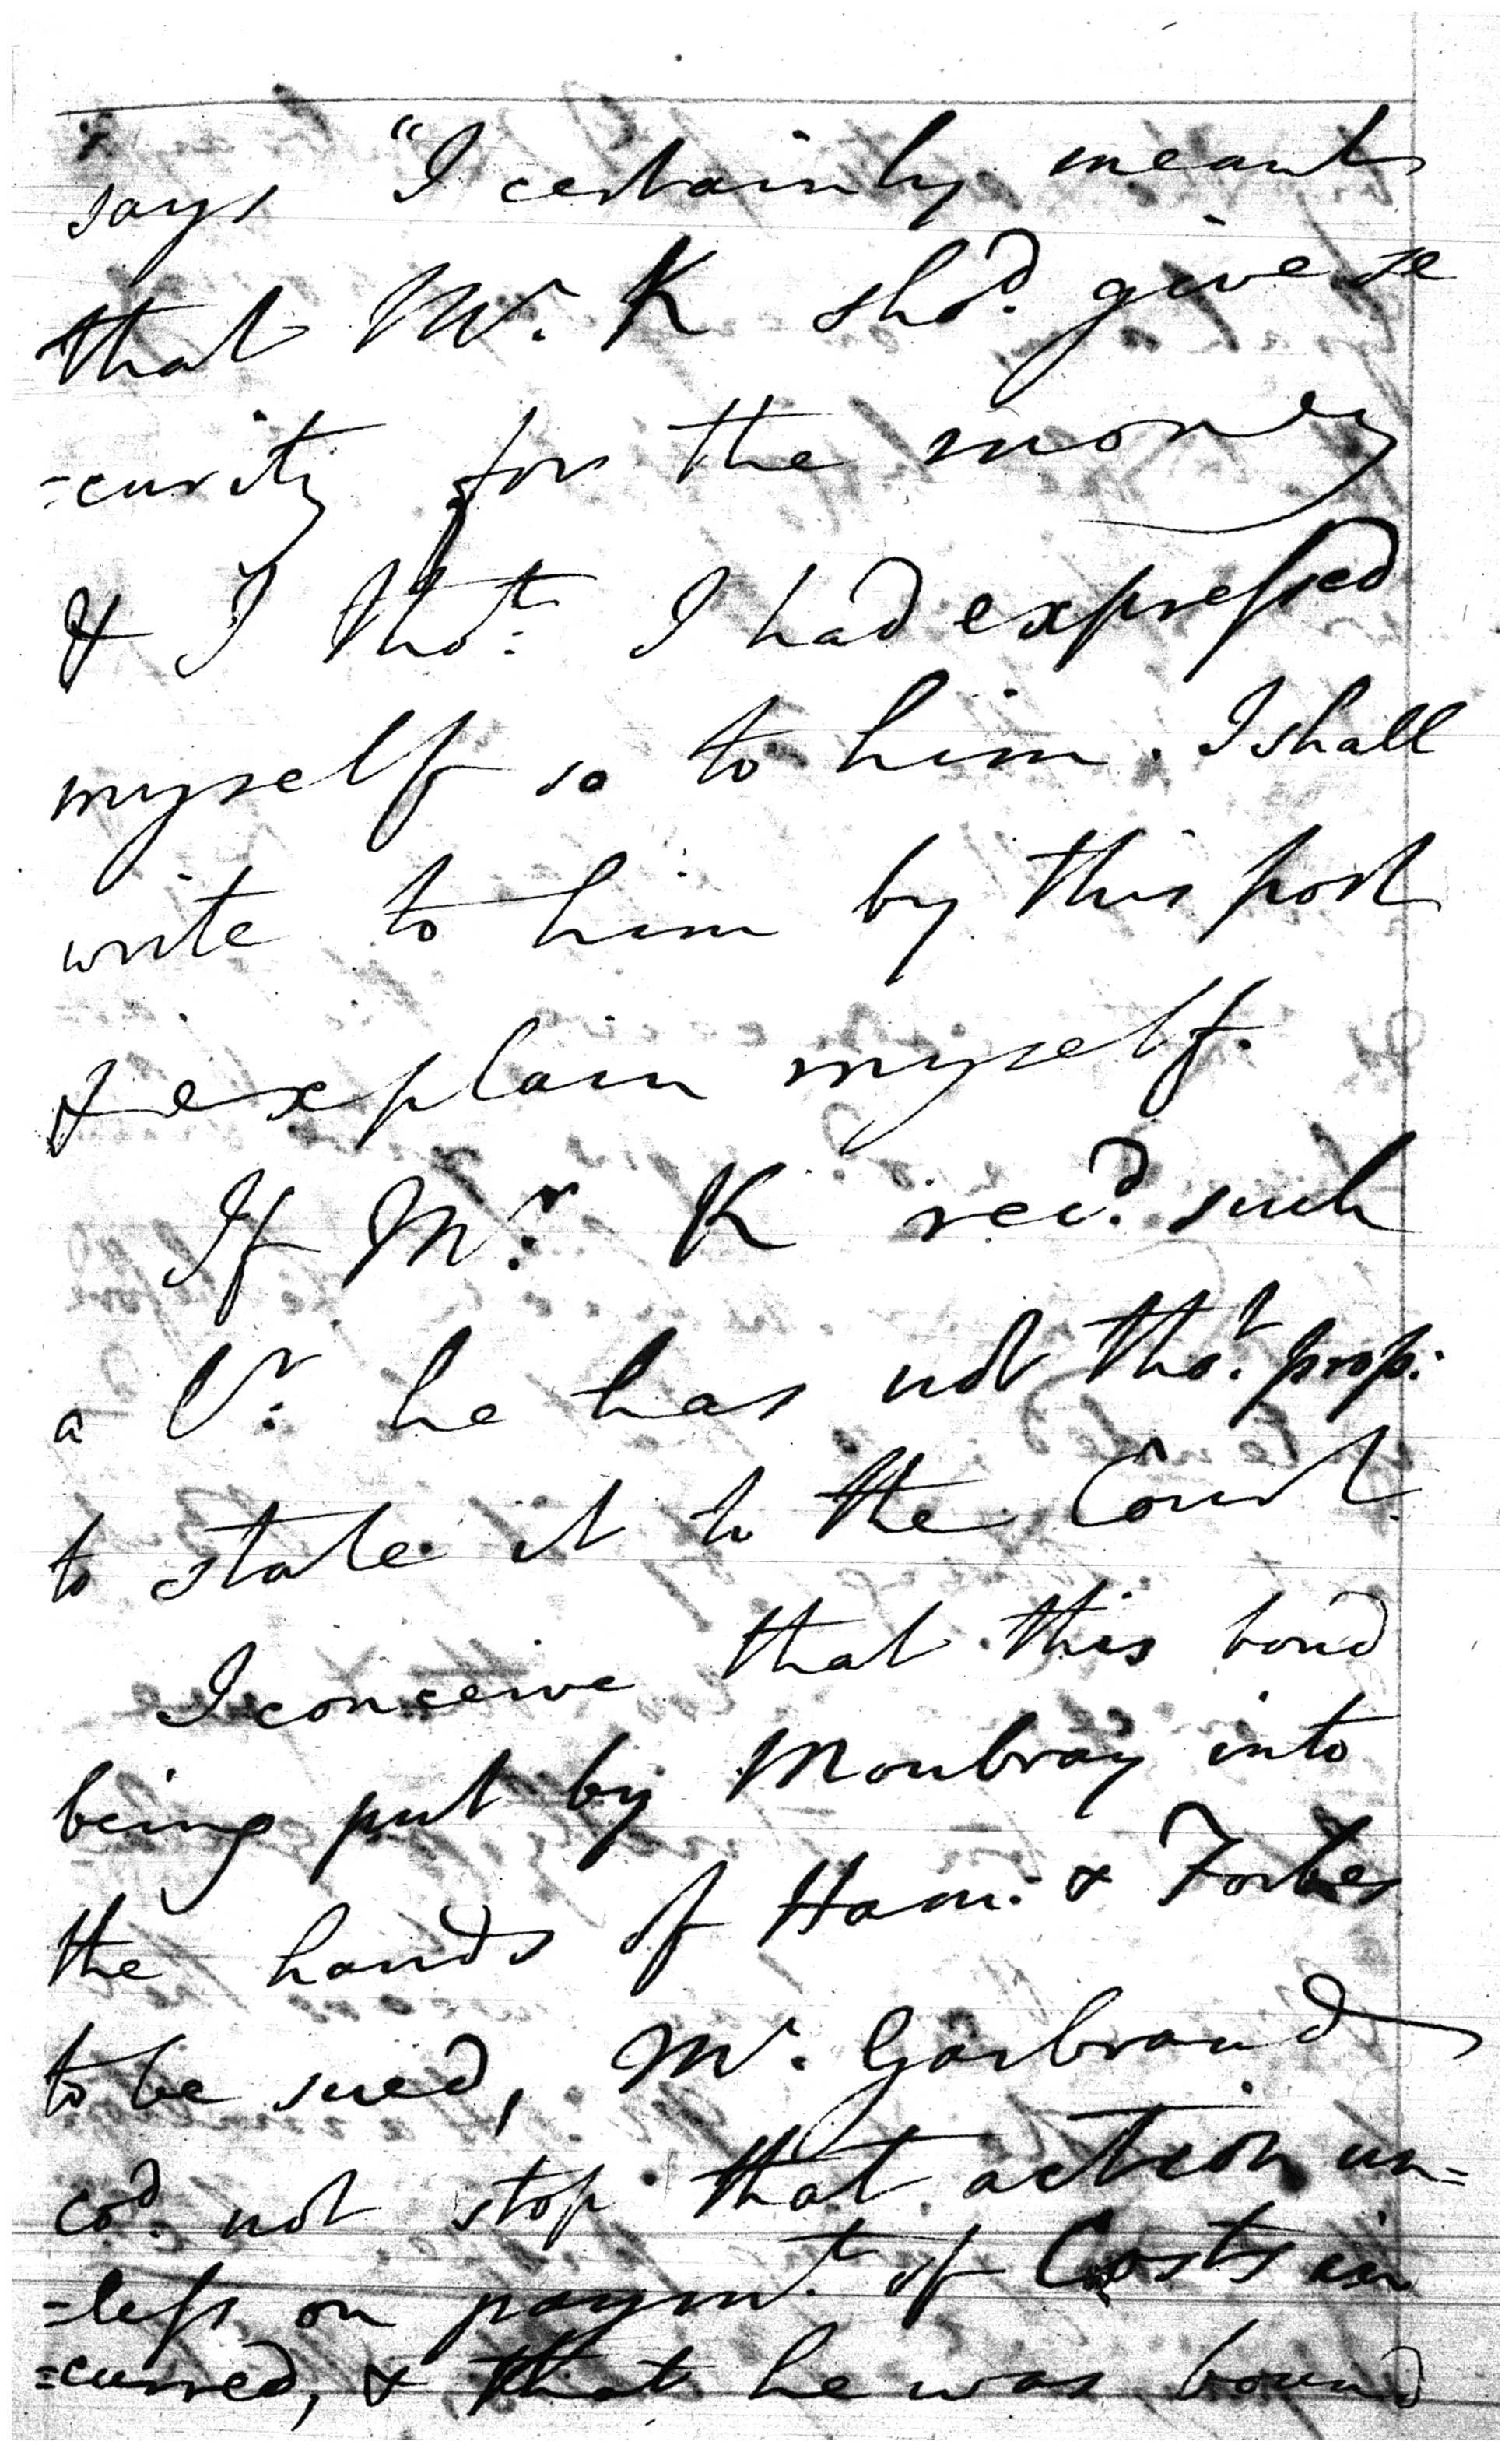 says "I certainly meant
that Mr. K shod. give se
=curity for the money
& I thot. I had expressed
myself so to him. I shall
write to him by this post
& explain myself.
If Mr. K recd. such
a lr. he has not thot. prop.
to state it to the Court.
I conceive that this bond
being put by Moubray into
the hands of Ham. & Forbes
to be sued, Mr. Garbrand
cod. not stop that action un=
=less on paymt. of Costs in
=curred, & that he was bound